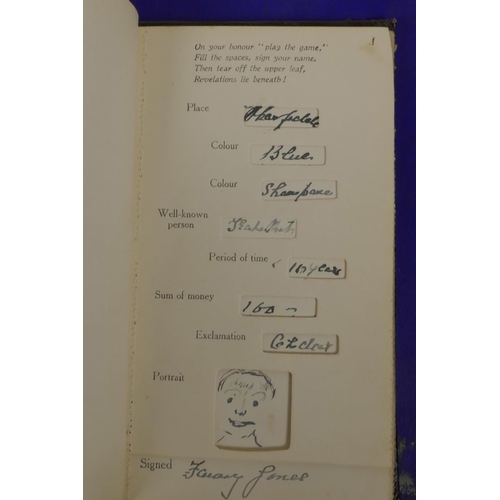 1
On your honour "play the game,"
Fill the spaces, sign your name,
Then tear off the upper leaf,
Revelations lie beneath!
Place
Colour Blue
Colour Shampane
Well-known person
Period of time 10 years
Sum of money 100
Exclamation
Portrait
Signed Fanny Jones